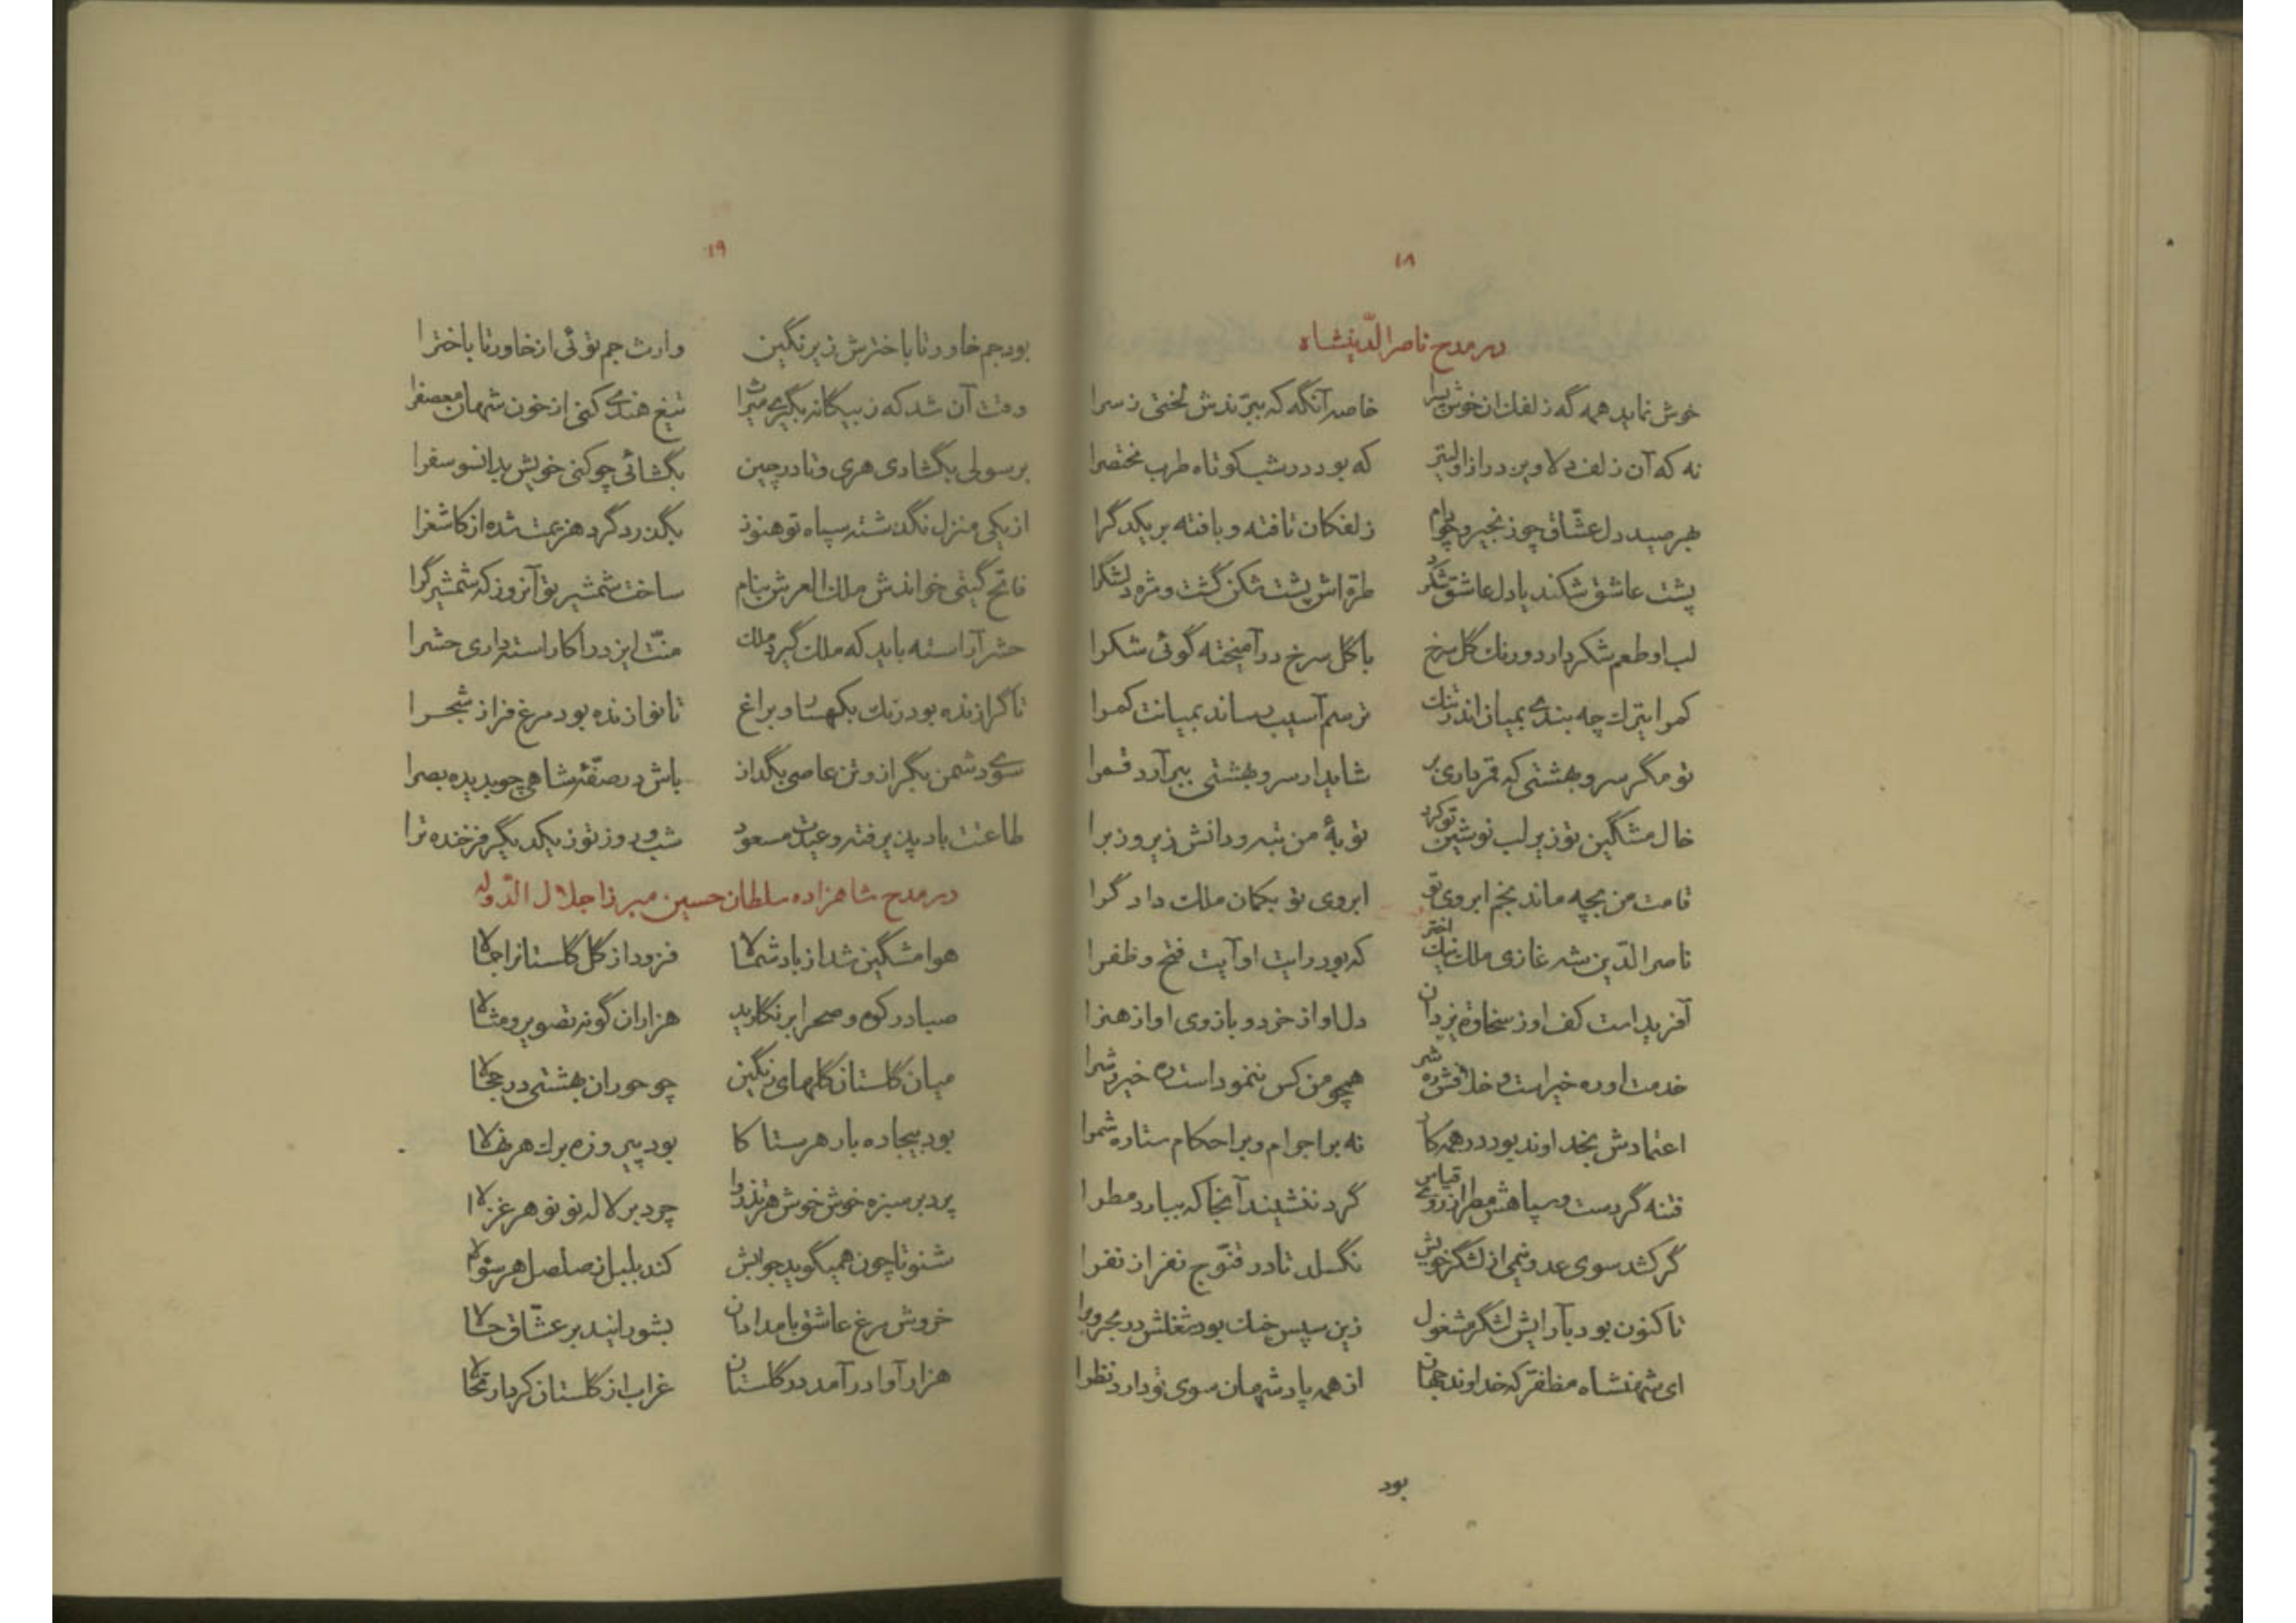 ۱۸
در مدح ناصر الدینشاه
خوش نماید همه گه زلفک ان خوش پسرا خاصه آنگه که ببرندش لختی ز سرا
نه که آن زلف دلاویز دراز اولیتر که بود در شب کوتاه طرب مختصرا
بهر صید دل عشاق چو زنجیر و چو دام زلفکان تافته و بافته بر یکدگرا
پشت عاشق شکند یا دل عاشق شکرد طره اش پشت شکن گشت و مژه دلشکرا
لب او طعم شکر دارد و رنک گل سرخ با گل سرخ در آمیخته گوئی شکرا
کمر ایترک چه بندی بمیان اندر تنک ترسم آسیب رساند بمیانت کمرا
تو مگر سرو بهشتی که قمر داری بر شاید ار سرو بهشتی ببر آرد قمرا
خال مشگین تو زیر لب نوشین تو کرد توبهٔ من تبه و دانش زیر و زبرا
قامت من بچه ماند بخم ابروی تو ابروی تو بکمان ملک دادگرا
ناصر الدین شه غازی ملک نیک اختر که بود رایت او آیت فتح و ظفرا
آفریداست کف او ز سخاوت یزدان دل او از خرد و بازوی او از هنرا
خدمت او ره خیر است و خلافش ره شر همچو من کس ننموداست ره خیر و شرا
اعتمادش بخداوند بود در همه کار نه بر اجرام و بر احکام ستاره شمرا
فتنه گردست و سپاهش مطر از روی قیاس گرد ننشیند آنجا که ببارد مطرا
گر کشد سوی عدو نیمی از لشگر خویش نگسلد تا در قنوج نفر از نفرا
تا کنون بود بآرایش لشگر مشغول زین سپس خنک بود شغلش در بحر و برا
ای شهنشاه مظفر که خداوند جهان از همه پادشهان سوی تو دارد نظرا
بود
۱۹
بود جم خاور تا باخترش زیر نگین وارث جم توئی از خاور تا باخترا
وقت آن شد که ز بیگانه بگیری میراث تیغ هندی کنی از خون شهان معصفرا
برسولی بگشادی هری و تا در چین بگشائی چو کنی خویش بدانسو سفرا
از یکی منزل نگذشته سپاه تو هنوز بگذرد گرد هزیمت شده از کاشغرا
فاتح گیتی خواندش ملک العرش بنام ساخت شمشیر تو آنروز که شمشیرگرا
حشر آراسته باید که ملک گیرد ملک منت ایزد را کاراسته داری حشرا
تا گرازنده بود رنک بکهسار و براغ تا نوازنده بود مرغ فراز شجرا
سوی دشمن بگراز و تن عاصی بگداز باش در صفهٔ شاهی چو بدیده بصرا
طاعتت باد پذیرفته و عیدت مسعود شب و روز تو ز یکدیگر فرخنده ترا
در مدح شاهزاده سلطان حسین میرزا جلال الدوله
هوا مشگین شد از باد شمالا فزود از گل گلستانرا جمالا
صبا در کوه و صحرا بر نگارید هزاران گونه تصویر و مثالا
میان گلستان گلهای رنگین چو حوران بهشتی در حجالا
بود بیجاده بار هر ستاکا بود پیروزه برک هر نهالا
پرد بر سبزه خوش خوش هر تذروا چرد بر لاله نو نو هر غزالا
شنو تا چون همیگوید جوابش کند بلبل ز صلصل هر سئوالا
خروش مرغ عاشق بامدادان بشورانید بر عشاق حالا
هزار آوا در آمد در گلستان غراب از گلستان کرد ارتحالا